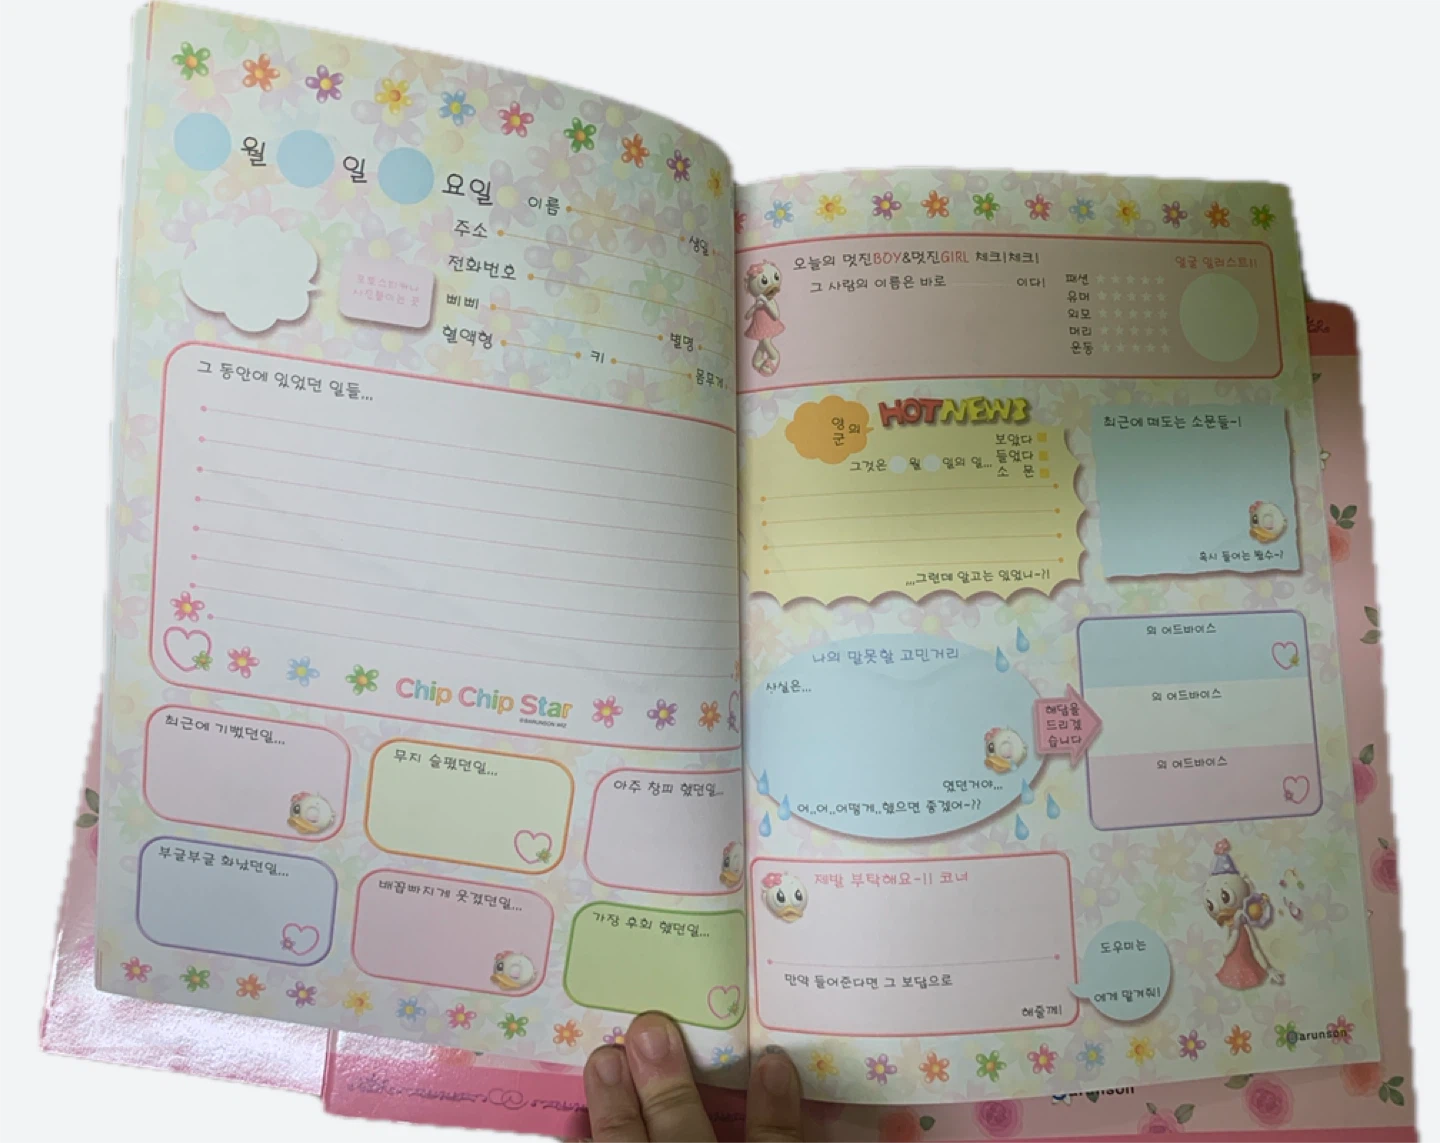 월 일 요일
이름
생일
주소
전화번호
삐삐
별명
혈액형 키
몸무게
포토스티커나
사진붙이는 곳
그 동안에 있었던 일들...
Chip Chip Star
©BARUNSON
최근에 기뻤던일...
무지 슬펐던일...
아주 창피 했던일...
부글부글 화났던일...
배꼽빠지게 웃겼던일...
가장 후회 했던일...
오늘의 멋진BOY&멋진GIRL 체크!체크!
얼굴 일러스트!!
그 사람의 이름은 바로 이다!
패션
유머
외모
머리
운동
HOTNEWS
의
보았다
들었다
소 문
그것은 월 일의 일...
...그런데 알고는 있었니~?!
최근에 떠도는 소문들~!
혹시 들어는 봤수~?
나의 말못할 고민거리
사실은...
였던거야...
어..어..어떻게..했으면 좋겠어~??
해답을
드리겠
습니다
의 어드바이스
의 어드바이스
의 어드바이스
제발 부탁해요~!! 코너
만약 들어준다면 그 보답으로
해줄께!
도우미는
에게 맡겨줘!
Barunson
Barunson